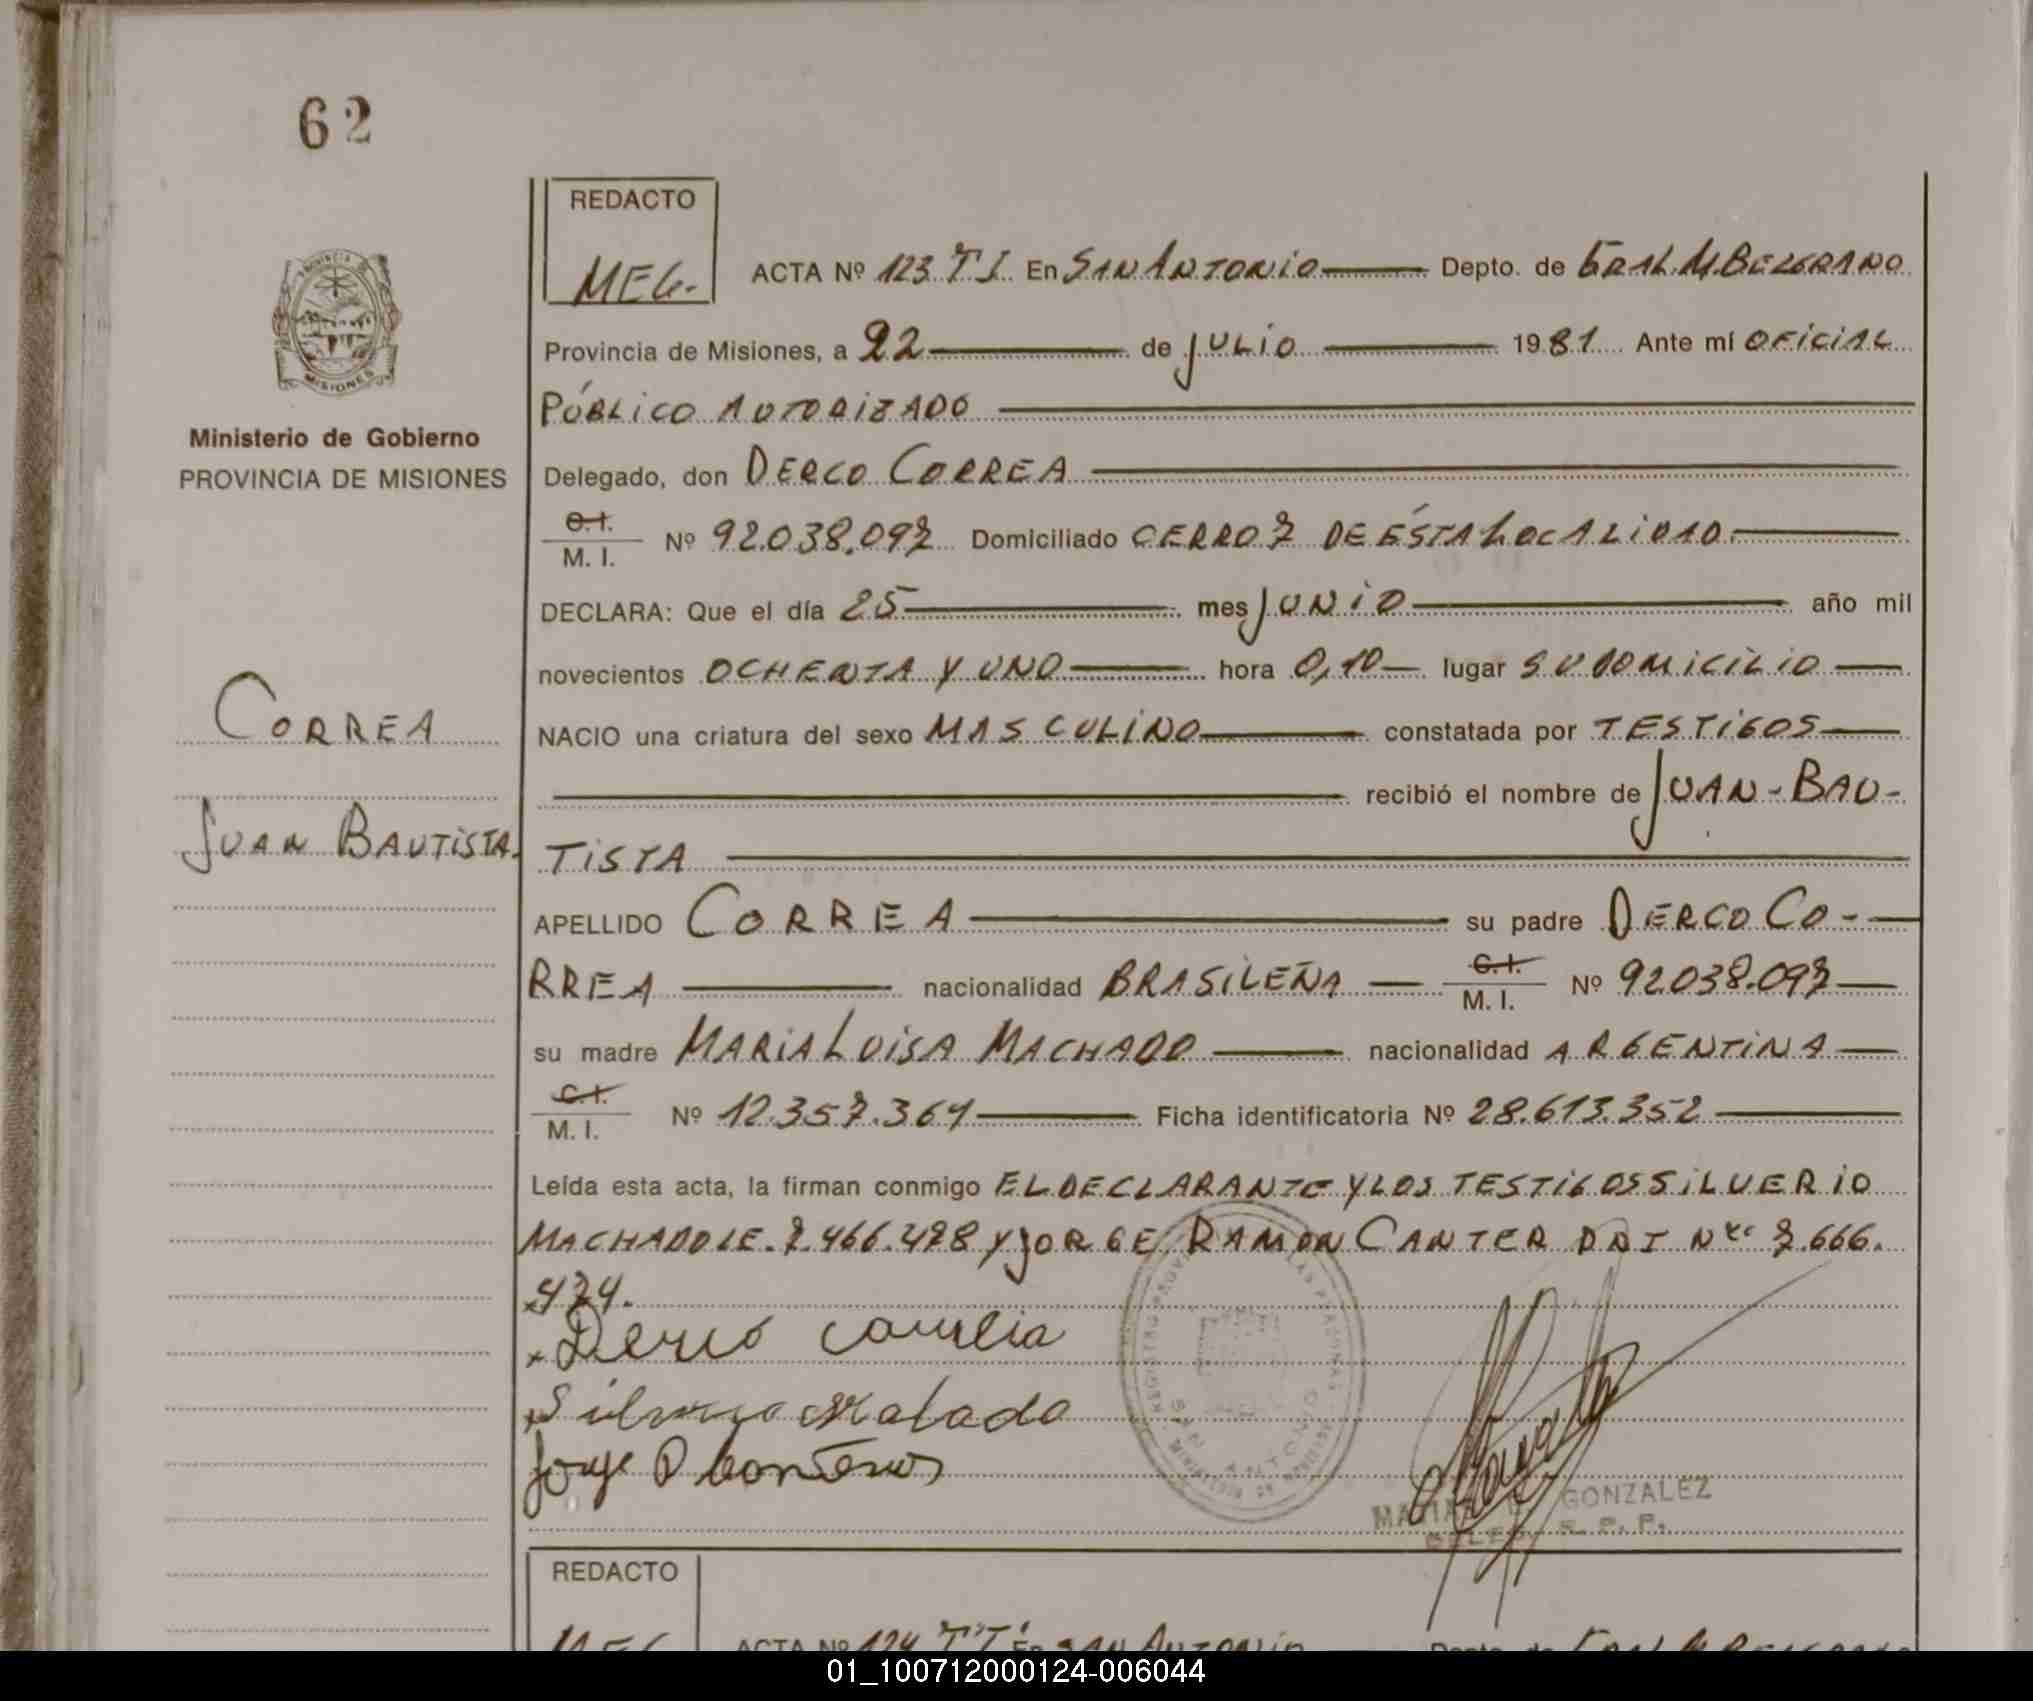 62
REDACTO
MEG.
ACTA Nº 123 T I En SAN ANTONIO Depto. de GRAL M. BELGRANO
Provincia de Misiones, a 22 de JULIO 1981 Ante mí OFICIAL
PÚBLICO AUTORIZADO
Delegado, don DERCO CORREA
C.I.
M. I. Nº 92.038.097 Domiciliado CERRO 7 DE ÉSTA LOCALIDAD
DECLARA: Que el día 25 mes JUNIO año mil
novecientos OCHENTA Y UNO hora 0,10 lugar SU DOMICILIO
NACIO una criatura del sexo MASCULINO constatada por TESTIGOS
recibió el nombre de JUAN-BAU-
TISTA
APELLIDO CORREA su padre DERCO CO-
RREA nacionalidad BRASILEÑA C.I. M. I. Nº 92.038.097
su madre MARIA LUISA MACHADO nacionalidad ARGENTINA
C.I.
M. I. Nº 12.357.361 Ficha identificatoria Nº 28.613.352
Leída esta acta, la firman conmigo EL DECLARANTE Y LOS TESTIGOS SILVERIO
MACHADO LE. 7.466.478 Y JORGE RAMON CANTER DNI Nº 7.666.
474.
PROVINCIA DE
MISIONES
Ministerio de Gobierno
PROVINCIA DE MISIONES
CORREA
JUAN BAUTISTA.
SAN ANTONIO
GONZALEZ
REDACTO
MEG
ACTA Nº 124 TI En SAN ANTONIO Depto. de GRAL M. BELGRANO
01_100712000124-006044